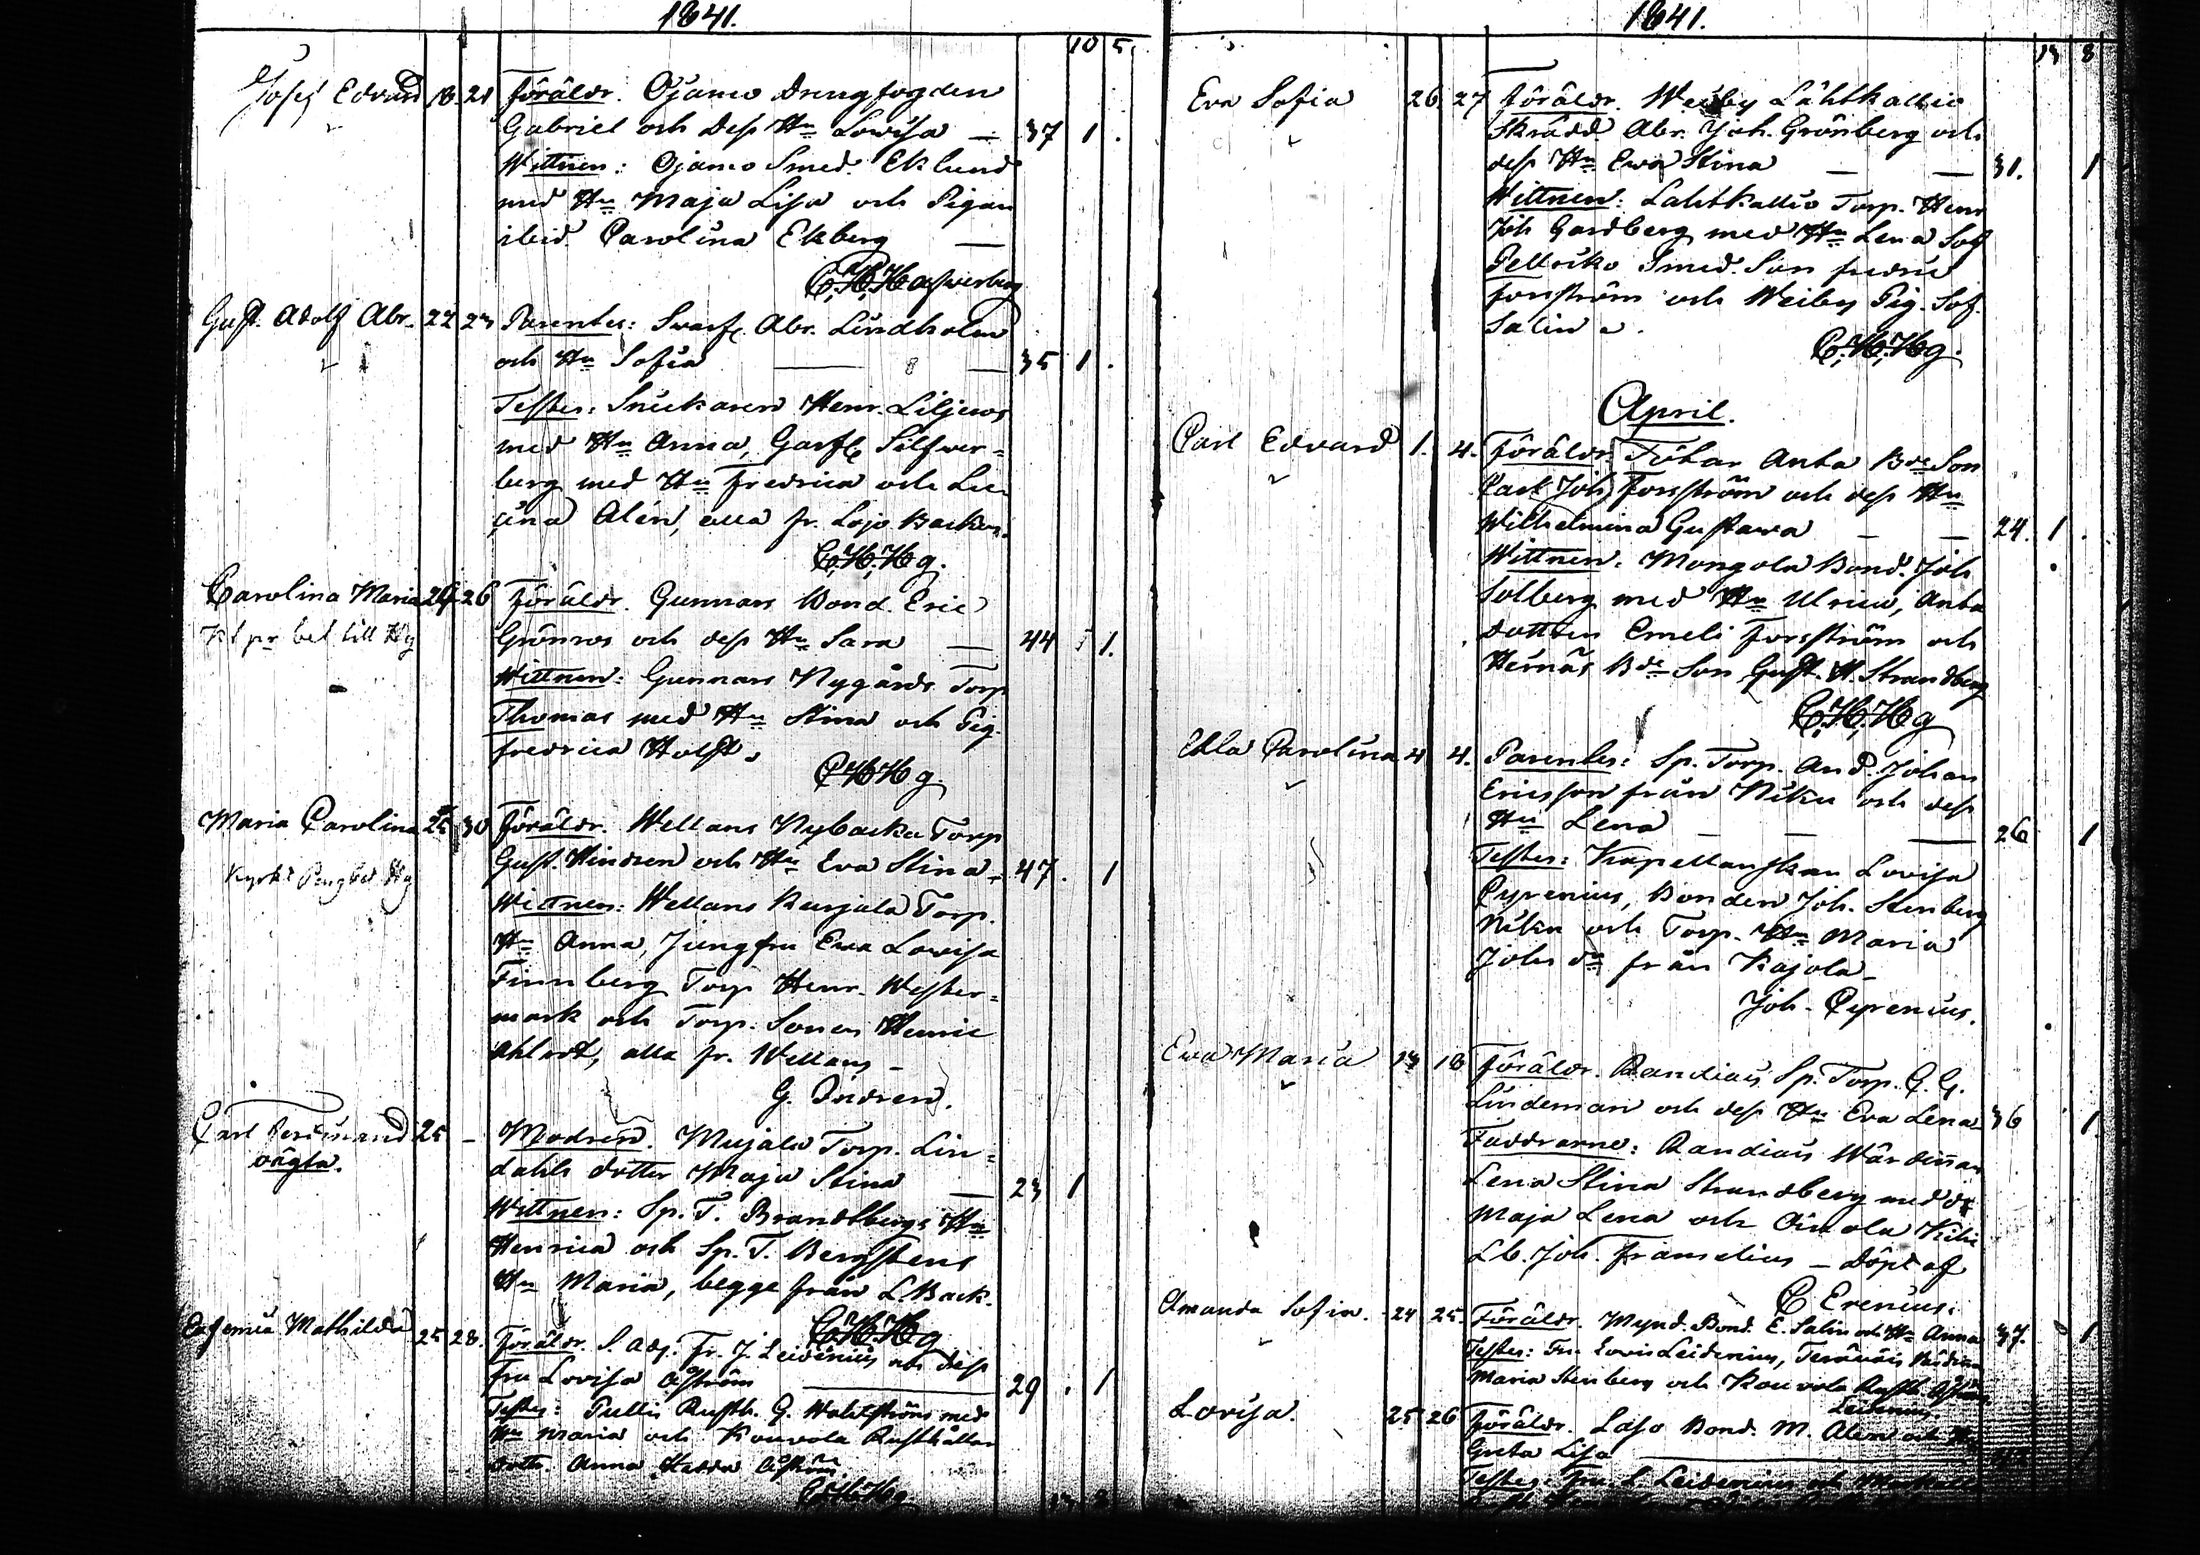 1841.
10 5
Josef Edvard 18. 21 Föräldr. Ojamo drengfogden
Gabriel och dess Hu Lovisa — 37 1 .
Wittnen: Ojamo Smed. Eklund
med Hu Maja Lisa och Pigan
ibid. Carolina Ekberg —
C. H. H
Gust. Adolf Abr. 22 23 Parentes: Svarf. Abr. Lindholm
och Hu Sofia — — 35 1 .
Testes: Snickaren Henr. Liljeros
med Hu Anna, Garf. Silfver=
berg med Hu Fredrica och
Alén, alla fr. Lojo Backen.
C. H. Hg.
Carolina Maria 24 26 Föräldr. Gunnars Bond. Eric
bet till Hg Grönros och dess Hu Sara — 44 1.
Wittnen: Gunnars Nygårds Torp
Thomas med Hu Stina och Pig.
Fredrica Holst.
C H Hg.
Maria Carolina 25 30 Föräldr. Wellans Nybacka Torp
Gust. Hindsen och Hu Eva Stina = 47. 1
Wittnen: Wellans Torp.
Hu Anna, Jungfru Eva Lovisa
Finnberg Torp Henr. Wester=
mark och Torp. Sonen Henric
alla fr. Wellans —
G. Indren.
Carl Ferdinand 25 — Modren. Mujala Torp. Lin=
oägta.
dahls dotter Maja Stina — 23 1
Wittnen: Sp. T. Brandtbergs Hu
Henrica och Sp. T. Bergstens
Hu Maria, begge från L. Back.
C. H. Hg
Eufemia Mathilda 25 28. Föräldr. S. Adj. Fr. J. Leidenius och dess
Fru Lovisa Åström — 29 . 1
Testes: Pullis Rusth. G. Wahlström med
Hu Maria och Kouvola Rusthållar
dottr. Anna Hedda Åström
C. H. Hg.
1841.
13 8
Eva Sofia 26 27 Föräldr. Weiby Lahtkallio
Skrädd. Abr. Joh. Grönberg och
dess Hu Ewa Stina — — 31. 1
Wittnen: Lahtkallio Torp. Henr
Joh Gardberg med Hu Lena Sof
Smed. Son Fredric
Forsström och Weiby Pig. Sof.
Salin.
C. H. Hg.
April.
Carl Edvard 1. 4. Föräldr. Anta Bde Son
Carl Joh Forsström och dess Hu
Wilhelmina Gustava — — 24. 1 .
Wittnen: Mongola Bond. Joh
Solberg med Hu Ulrica, Anta
Dottren Emeli Forsström och
Hernäs Bde Son Gust. H. Strandberg
C. H. Hg
Ulla Carolina 4 4. Parentes: Sp. Torp. And. Johan
Ericsson från Niku och dess
Hu Lena — — — 26 1
Testes: Kapellanskan Lovisa
Cyrenius, Bonden Joh. Stenberg
Niku och Torp. Hu Maria
Johs dr från Kajola —
Joh. Cyrenius.
Ewa Maria 13 18 Föräldr. Sp. Torp. G. G.
Lindeman och dess Hu Eva Lena 36 1.
Faddrarne: Wärdinnan
Lena Stina Strandberg med dr
Maja Lena och
Joh. Framelius — Döpt af
C Erenius.
Amanda Sofia. 24 25. Föräldr. Mynd. Bond. E. Salin och Hu Anna 37. 1
Testes: Fru Lovis Leidenius,
Maria Stenberg och Kouvola Rusth.
Leidenius.
Lovisa. 25 26 Föräldr. Bond. M. Alén och Hu
Greta Lisa —
Testes: Fru L. Leidenius och